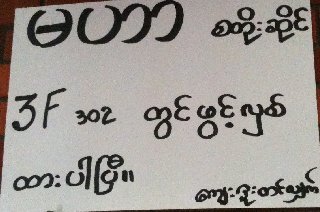 မဟာ စတိုးဆိုင်
3F ၃၀၃ တွင်ဖွင့်လှစ်
ထားပါပြီ။
ကျေးဇူးတင်လျှက်